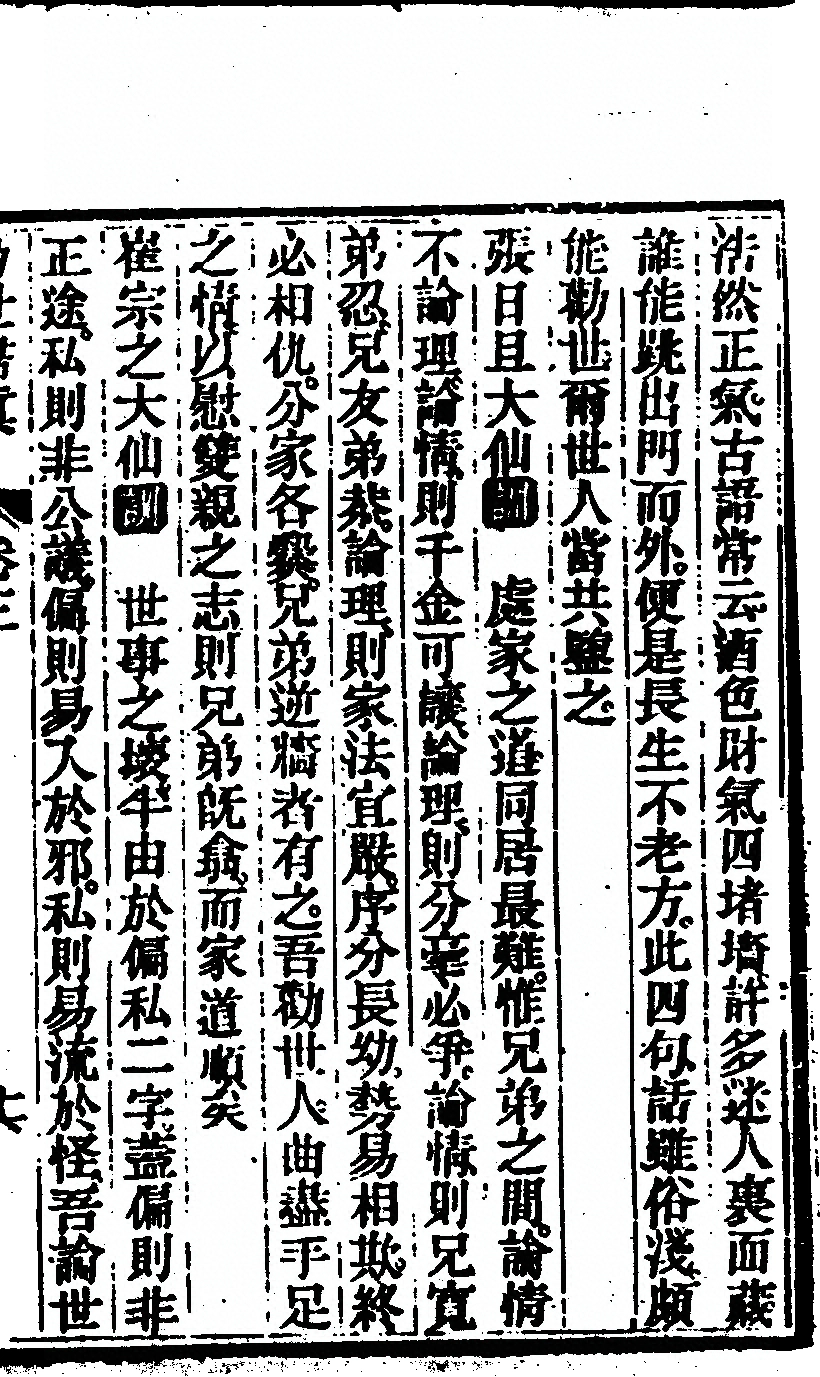 浩然正氣。古語常云。酒色財氣四堵墻。許多迷人裏面藏。
誰能跳出門而外。便是長生不老方。此四句話雖俗淺。頗
能勸世。爾世人當共鑒之。
張日且大仙訓 處家之道同居最難。惟兄弟之間。論情
不論理。論情則千金可讓。論理則分毫必爭。論情則兄寬
弟忍。兄友弟恭。論理則家法宜嚴。序分長幼。勢易相欺。終
必相仇。分家各爨。兄弟逆牆者有之。吾勸世人曲盡手足
之情。以慰雙親之志。則兄弟旣翕。而家道順矣
崔宗之大仙訓 世事之壞。半由於偏私二字。蓋偏則非
正途。私則非公議。偏則易入於邪。私則易流於怪。吾論世
卷三